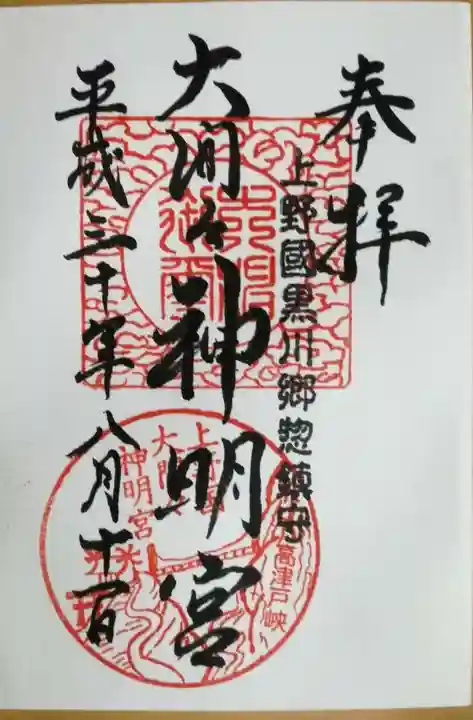 奉拝
上野國黒川郷惣鎮守
大間々神明宮
平成三十年八月十一日
大間々
神明宮
高津戸峡